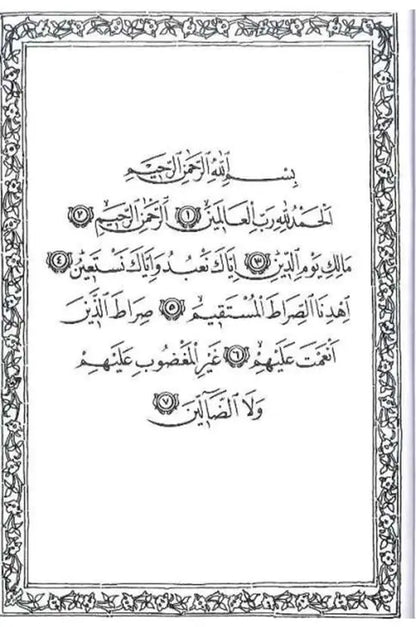 بِسْمِ اللهِ الرَّحْمٰنِ الرَّحِيمِ
اَلْحَمْدُ لِلّٰهِ رَبِّ الْعَالَمِينَ ١ اَلرَّحْمٰنِ الرَّحِيمِ ٢
مَالِكِ يَوْمِ الدِّينِ ٣ اِيَّاكَ نَعْبُدُ وَاِيَّاكَ نَسْتَعِينُ ٤
اِهْدِنَا الصِّرَاطَ الْمُسْتَقِيمَ ٥ صِرَاطَ الَّذِينَ
اَنْعَمْتَ عَلَيْهِمْ ٦ غَيْرِ الْمَغْضُوبِ عَلَيْهِمْ
وَلَا الضَّالِّينَ ٧